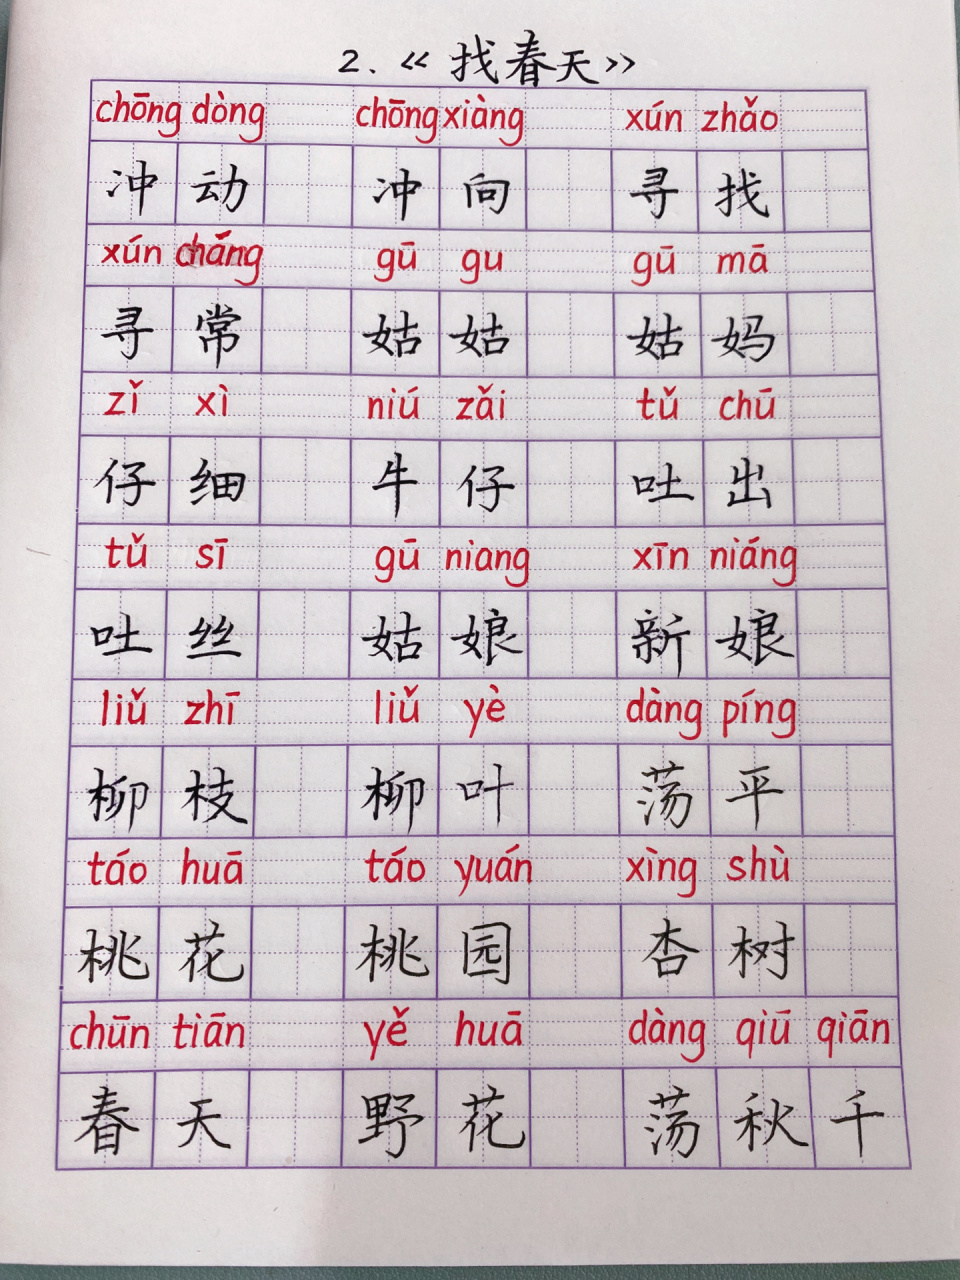 2.《找春天》
chōng dòng chōng xiàng xún zhǎo
冲动 冲向 寻找
xún cháng gū gu gū mā
寻常 姑姑 姑妈
zǐ xì niú zǎi tǔ chū
仔细 牛仔 吐出
tǔ sī gū niang xīn niáng
吐丝 姑娘 新娘
liǔ zhī liǔ yè dàng píng
柳枝 柳叶 荡平
táo huā táo yuán xìng shù
桃花 桃园 杏树
chūn tiān yě huā dàng qiū qiān
春天 野花 荡秋千